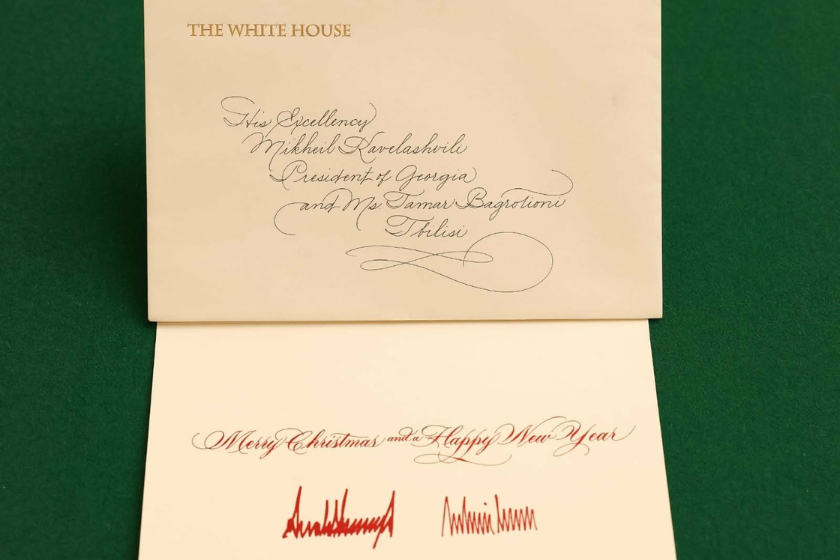 THE WHITE HOUSE
His Excellency
Mikheil Kavelashvili
President of Georgia
and Ms Tamar Bagrationi
Tbilisi
Merry Christmas and a Happy New Year